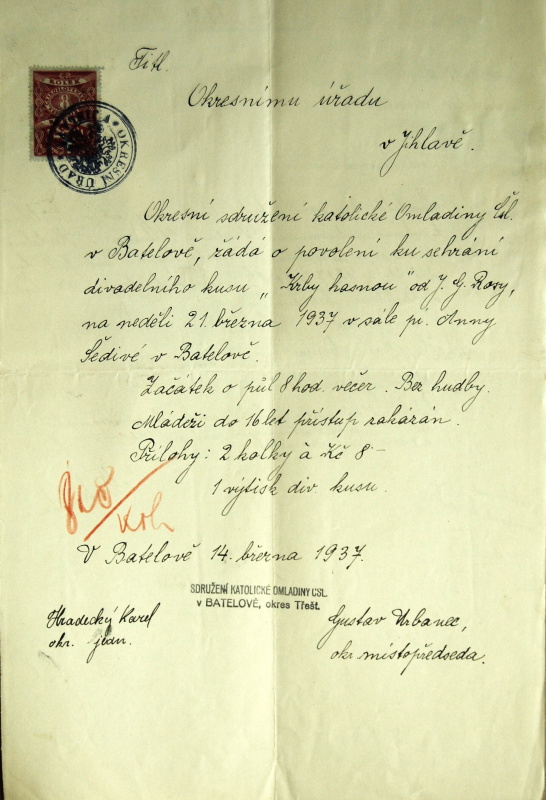 Titl.
Okresnímu úřadu
v Jihlavě.
Okresní sdružení katolické Omladiny Čsl.
v Batelově, žádá o povolení ku sehrání
divadelního kusu „Krby hasnou" od J. G. Rosy,
na neděli 21. března 1937 v sále pí. Anny
Šedivé v Batelově.
Začátek o půl 8 hod. večer. Bez hudby.
Mládeži do 16 let přístup zakázán.
Přílohy: 2 kolky à Kč 8-
1 výtisk div. kusu.
V Batelově 14. března 1937.
SDRUŽENÍ KATOLICKÉ OMLADINY ČSL.
v BATELOVĚ, okres Třešť.
Hradecký Karel
okr. jedn.
Gustav Urbanec,
okr. místopředseda.
KOLEK
8
OKRESNÍ ÚŘAD